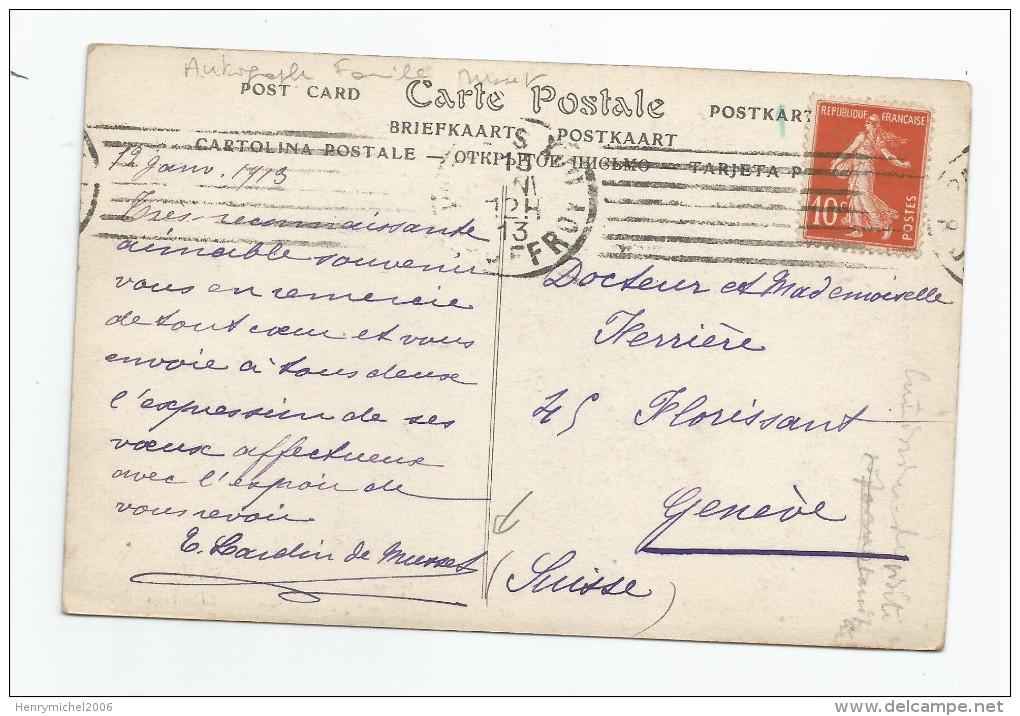 Autographe Famille Musset
POST CARD Carte Postale POSTKART
BRIEFKAART POSTKAART
CARTOLINA POSTALE — ОТКРЫТОЕ ПИСЬМО TARJETA P
REPUBLIQUE FRANÇAISE
10c POSTES
12H
13
12 Janv. 1913
Très reconnaissante
aimable souvenir
vous en remercie
de tout cœur et vous
envoie à tous deux
l'expression de ses
vœux affectueux
avec l'espoir de
vous revoir
E. Lardin de Musset
Docteur et Mademoiselle
Ferrière
45 Florissant
Genève
(Suisse)
Henrymichel2006